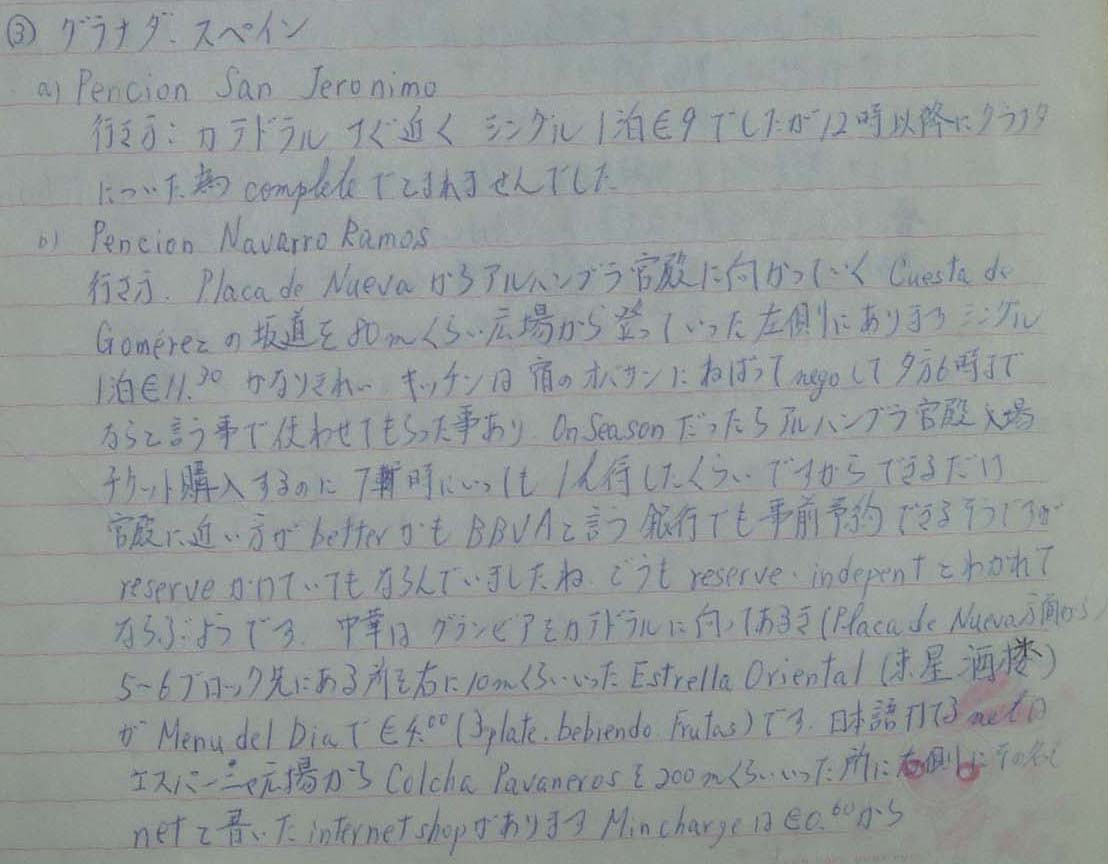 ③ グラナダ. スペイン
a) Pencion San Jeronimo
行き方: カテドラル すぐ近く シングル 1泊€9でしたが12時以降にグラナダ
についた為 completeでとまれませんでした
b) Pencion Navarro Ramos
行き方. Placa de Nuevaからアルハンブラ宮殿に向かっていく Cuesta de
Gomérezの坂道を80mくらい広場から登っていった左側にあります シングル
1泊€11.30 かなりきれい キッチンは宿のオバサンにねばってnegoして夕方6時まで
ならと言う事で使わせてもらった事あり. On Seasonだったらアルハンブラ宮殿入場
チケット購入するのに7時にいっても1h待したくらいですからできるだけ
宮殿に近い方がbetterかも BBVAと言う銀行でも事前予約できるそうですが
reserve かけていてもならんでいましたね. どうも reserve・indepentとわかれて
ならぶようです. 中華は グランビアをカテドラルに向ってあるき (Placa de Nueva方面から)
5~6ブロック先にある所を右に10mくらいいった Estrella Oriental (東星酒楼)
が Menu del Diaで €4.00 (3plate. bebiendo. Frutas) です. 日本語打てるnetは
エスパーニャ広場から Colcha Pavanerosを200mくらいいった所に右側にその名も
netと書いた internet shopがあります Min chargeは€0.60から